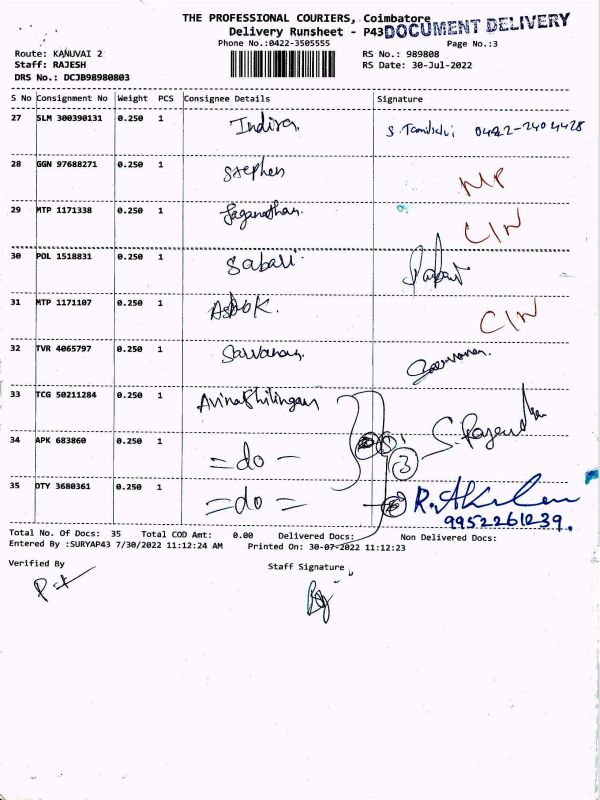 THE PROFESSIONAL COURIERS, Coimbatore
DOCUMENT DELIVERY
Delivery Runsheet - P43
Phone No.:0422-3505555
Page No.:3
Route: KANUVAI 2
RS No.: 989808
Staff: RAJESH
RS Date: 30-Jul-2022
DRS No.: DCJB98980803
S No Consignment No Weight PCS Consignee Details Signature
27 SLM 300390131 0.250 1 Indira S. Tamilselvi 0422-2404428
28 GGN 97688271 0.250 1 Stephen NP
29 MTP 1171338 0.250 1 Jaganathan. CIN
30 POL 1518831 0.250 1 Sabari.
31 MTP 1171107 0.250 1 ASHOK. CIN
32 TVR 4065797 0.250 1 Saravanan. Saravanan.
33 TCG 50211284 0.250 1 Avinashilingam
34 APK 683860 0.250 1 =do - 3
35 DTY 3680361 0.250 1 =do =
9952261239.
Total No. Of Docs: 35 Total COD Amt: 0.00 Delivered Docs: Non Delivered Docs:
Entered By :SURYAP43 7/30/2022 11:12:24 AM Printed On: 30-07-2022 11:12:23
Verified By
Staff Signature